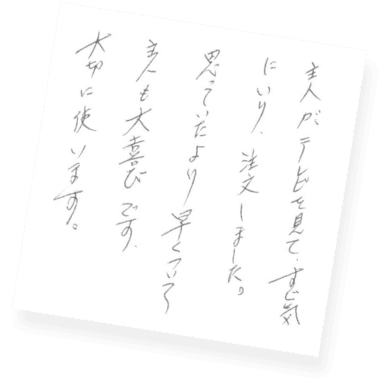 主人がテレビを見て、すぐ気
にいり、注文しました。
思っていたより早くついて
主人も大喜びです。
大切に使います。